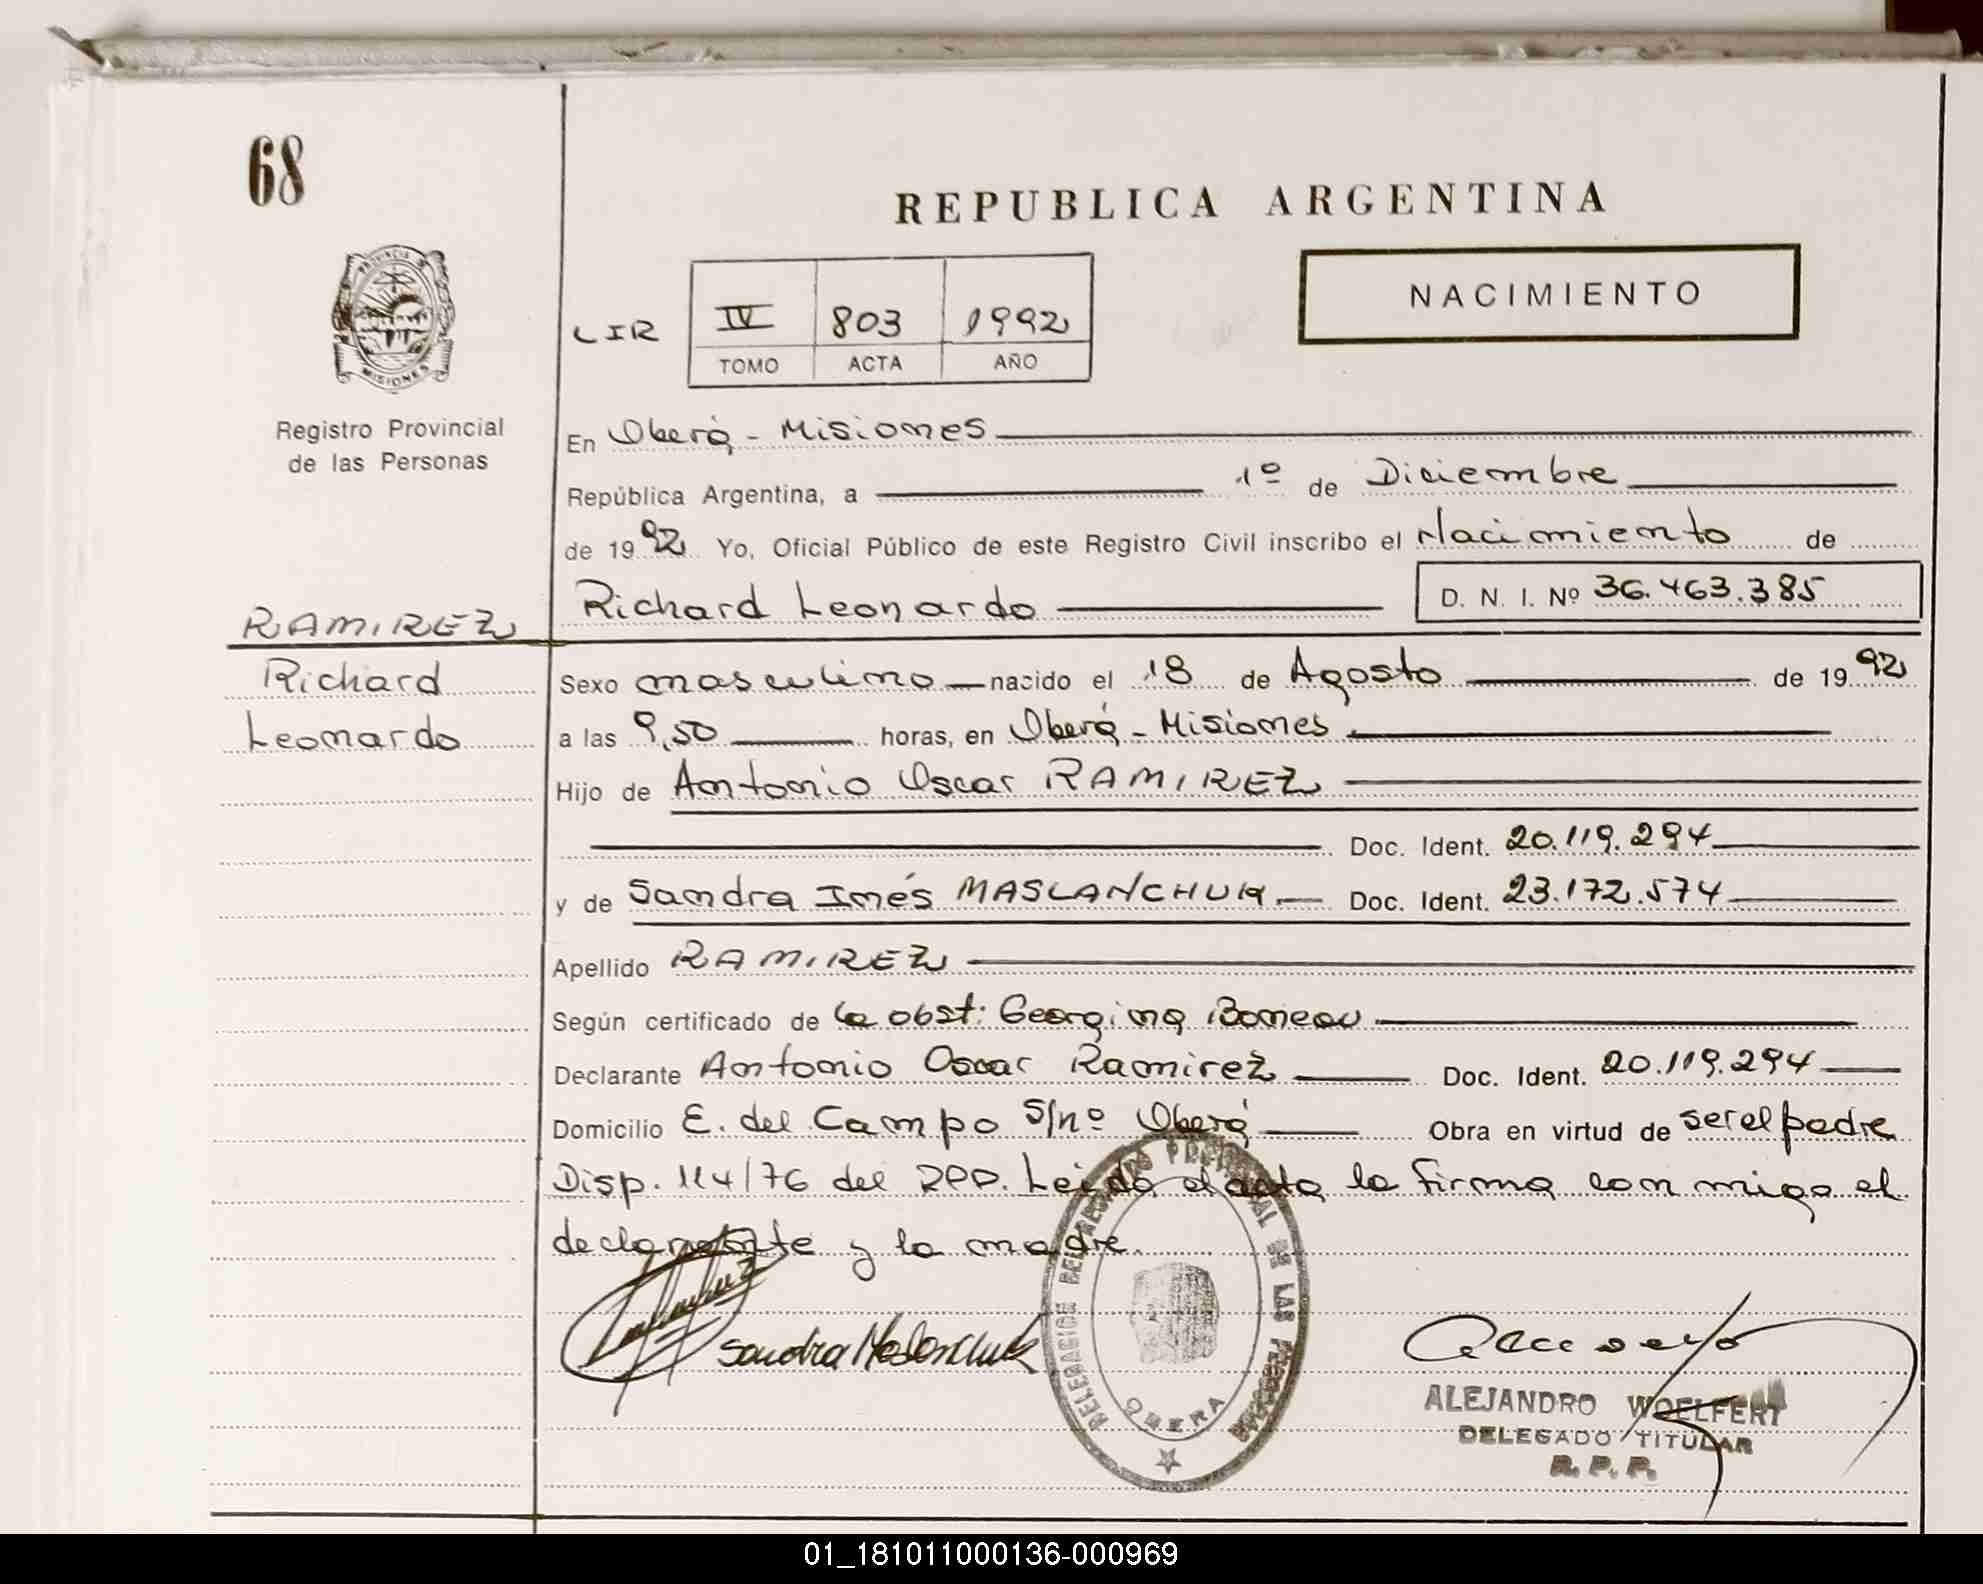 68
REPUBLICA ARGENTINA
NACIMIENTO
PROVINCIA DE
MISIONES
LIR
IV 803 1992
TOMO ACTA AÑO
Registro Provincial
de las Personas
En Oberá - Misiones
República Argentina, a 1º de Diciembre
de 1992 Yo, Oficial Público de este Registro Civil inscribo el Nacimiento de
Richard Leonardo D. N. I. Nº 36.463.385
RAMIREZ
Richard
Leonardo
Sexo masculino nacido el 18 de Agosto de 1992
a las 9,50 horas, en Oberá - Misiones
Hijo de Antonio Oscar RAMIREZ
Doc. Ident. 20.119.294
y de Sandra Inés MASLANCHUK Doc. Ident. 23.172.574
Apellido RAMIREZ
Según certificado de la obst: Georgina Boneau
Declarante Antonio Oscar Ramirez Doc. Ident. 20.119.294
Domicilio E. del Campo S/nº Oberá Obra en virtud de ser el padre
Disp. 114/76 del RPP. Leida el acta la firma con migo el
declarante y la madre.
Sandra Maslanchuk
DELEGACION DEL REGISTRO PROVINCIAL DE LAS PERSONAS
OBERA
ALEJANDRO WOELFERT
DELEGADO TITULAR
R. P. P.
01_181011000136-000969